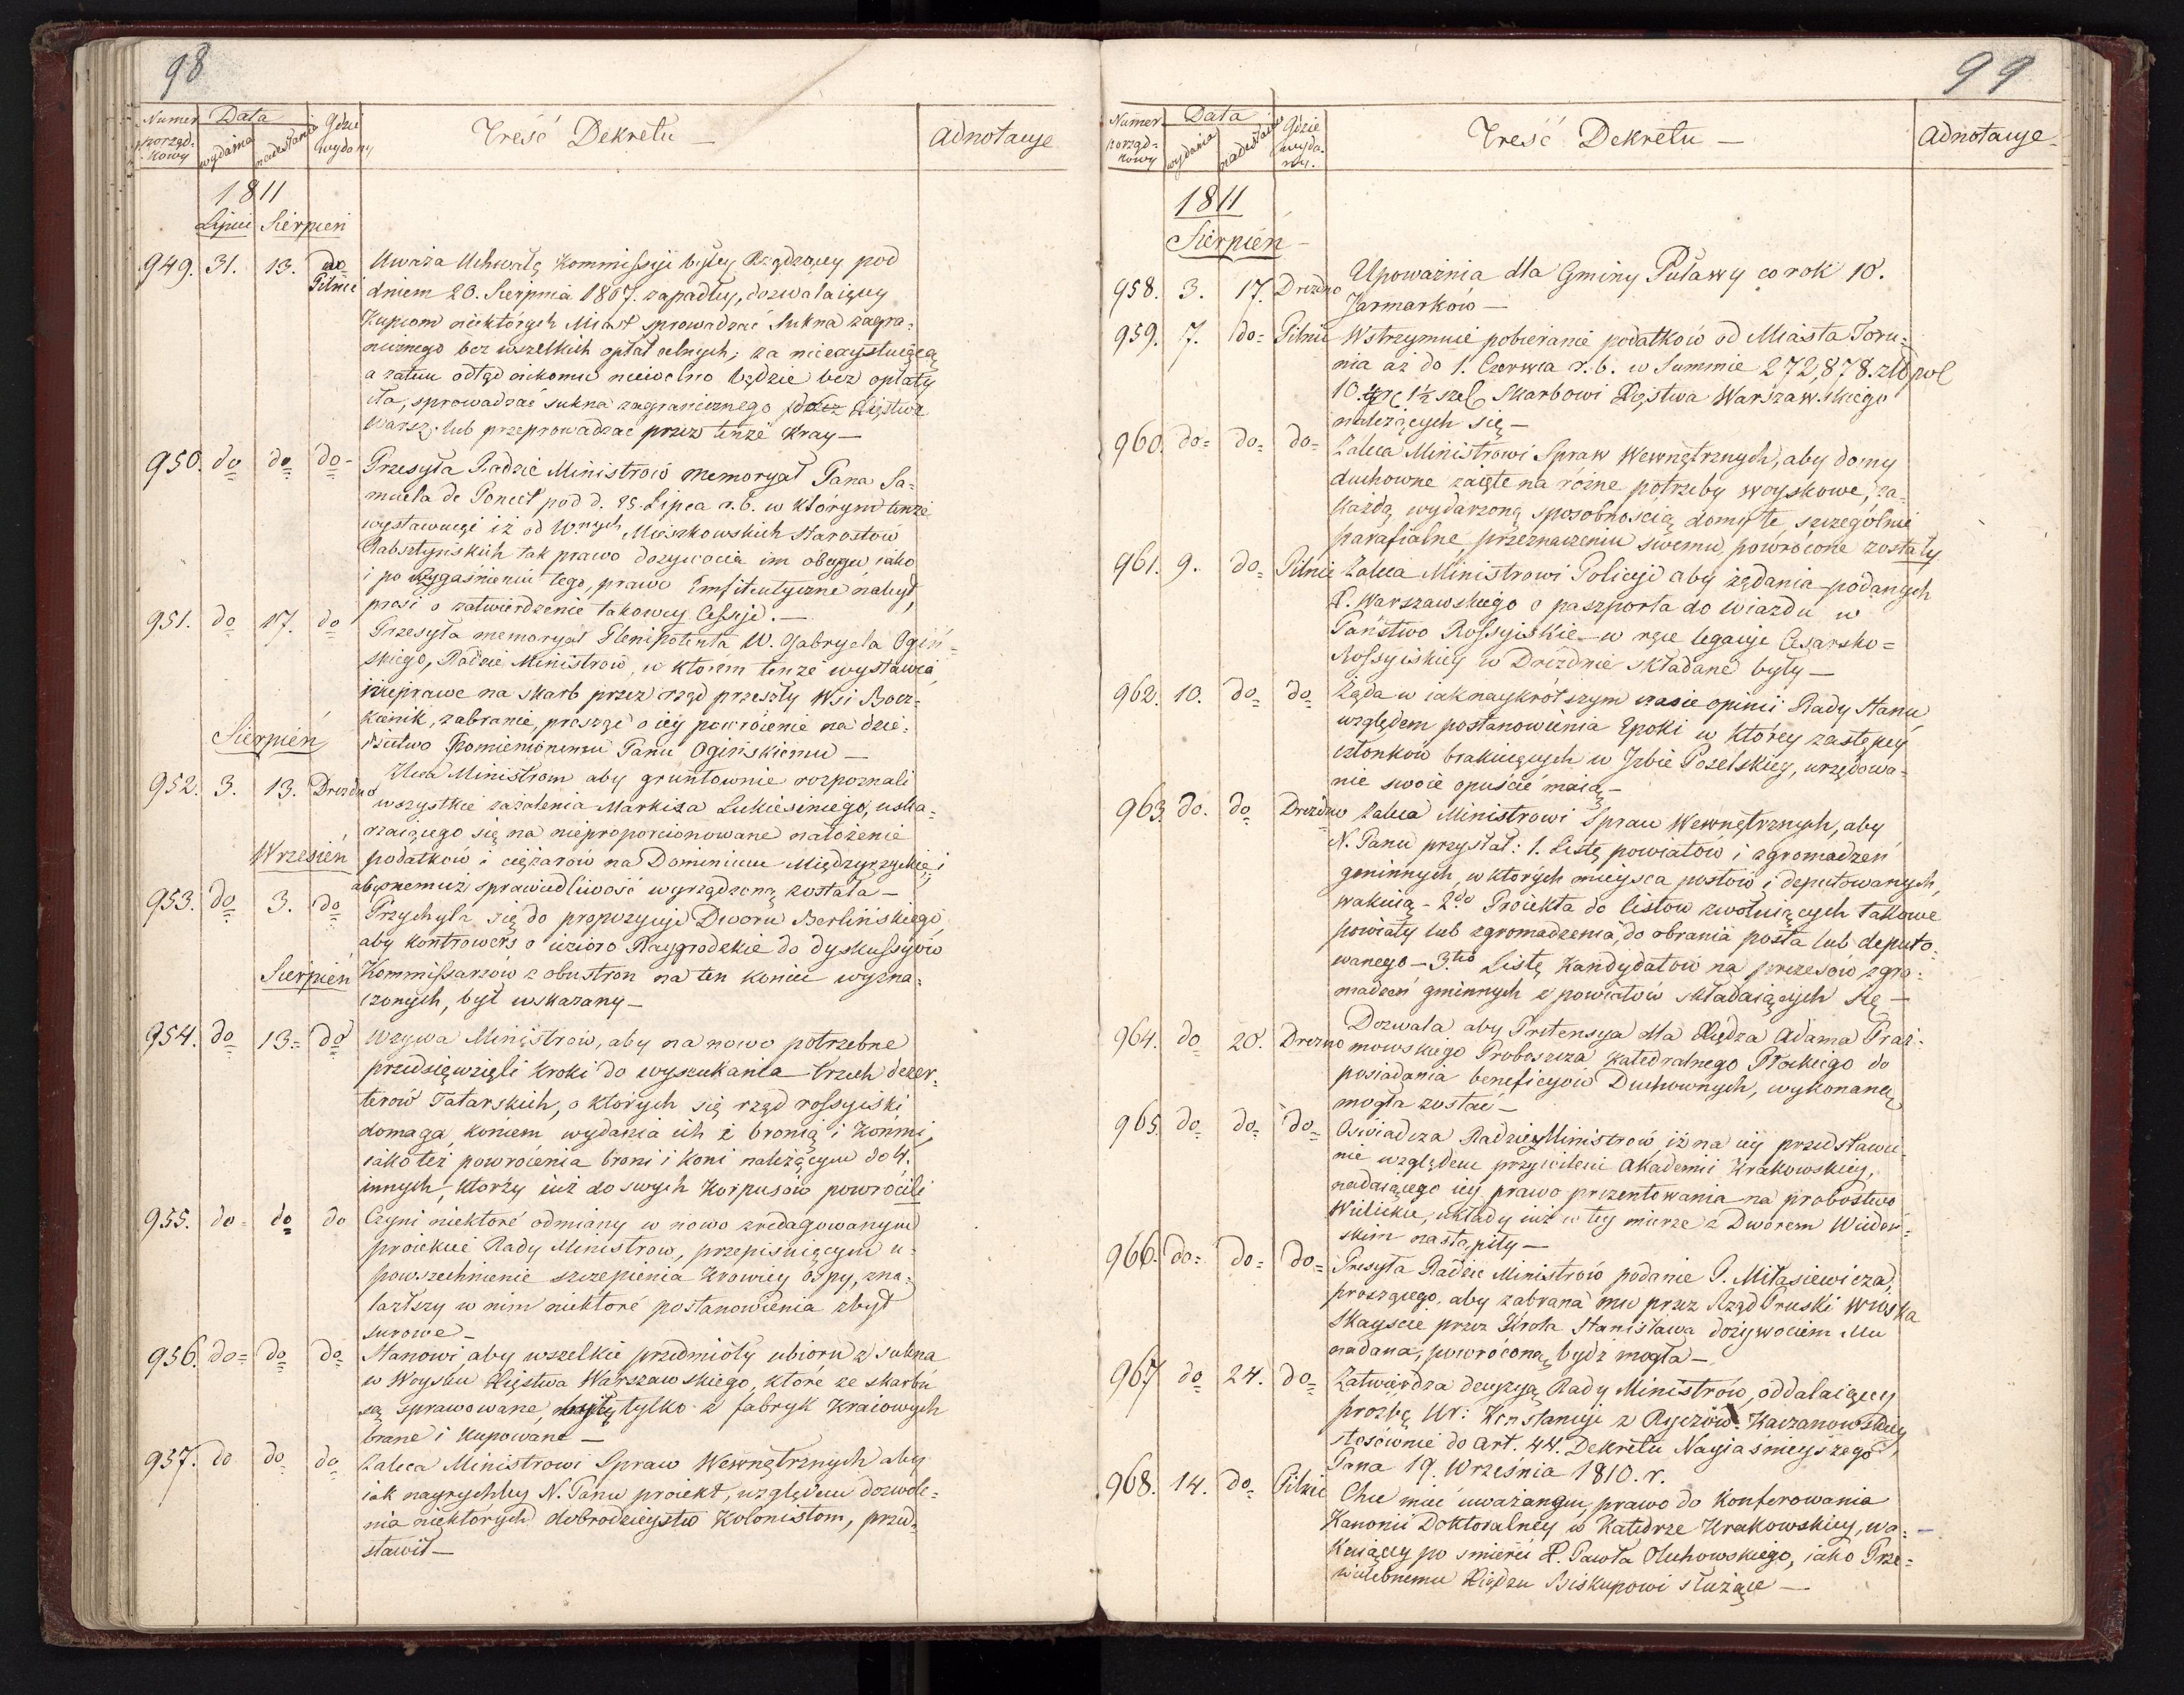 98
Numer porząd=kowy
Data
wydania
nadesłania
Gdzie wydany
Treść Dekretu —
Adnotacye
1811
Lipiec Sierpień
949. 31. 13. Pilnic
Uważa Uchwałę Kommissyi byłey Rządzącey pod
dniem 20. Sierpnia 1807. zapadłey, dozwalaiącey
Kupcom niektórych Miast sprowadzać Sukna zagra=
nicznego bez wszelkich opłat celnych; za nieexystuiącą
a zatem odtąd nikomu niewolno będzie bez opłaty
cła, sprowadzać sukna zagranicznego do Xięstwa
Warsz. lub przeprowadzać przez tenże Kray —
950. do do do-
Przesyła Radzie Ministrów memoryał Pana Sa=
muela de Poncet pod d. 25. Lipca r.b. w którym tenże
wystawuie iż od W.nych Mieszkowskich Starostów
Rabsztyńskich tak prawo dożywocia im obojgu iako
i po wygaśnieniu tego, prawo Emfiteutyczne nabył,
prosi o zatwierdzenie takowey Cessyi. —
951. do 17. do
Przesyła memoryał Plenipotenta W. Gabryela Ogiń=
skiego, Radzie Ministrów, w którem tenże wystawia
nieprawe na skarb przez rząd przeszły Wsi Bocz=
kienik, zabranie, prosząc o iey powrócenie na dzie=
dzictwo Pomienionemu Panu Ogińskiemu —
Sierpień
952. 3. 13. Drezdno
Zleca Ministrom aby gruntownie rozpoznali
wszystkie zażalenia Markiza Lukiesiniego, uska=
rzaiącego się na nieproporcionowane nałożenie
podatków i ciężarów na Dominium Międzyrzyckie, i
Wrzesień
aby onemuż sprawiedliwość wyrządzoną została —
953. do 3. do
Przychyla się do propozycyi Dworu Berlińskiego,
aby kontrowers o iezioro Raygrodzkie do dyskussyów
Sierpień
Kommissarzów z obustron na ten koniec wyzna=
czonych, był wskazany —
954. do 13= do
Wzywa Ministrów, aby na nowo potrzebne
przedsięwzięli Kroki do wyszukania trzech dezer=
terów Tatarskich, o których się rząd rossyiski
domaga, koniem wydania ich z bronią i Końmi,
iako też powrócenia broni i koni należącym do 4.
innych, którzy iuż do swych Korpusów powrócili
955. do= do do
Czyni niektóré odmiany w nowo zredagowanym
proiekcie Rady Ministrów, przepisuiącym u=
powszechnienie szczepienia Krowiey ospy, zna=
lazłszy w nim niektóré postanowienia zbyt
surowe —
956. do= do do
Stanowi aby wszelkie przedmioty ubioru z sukna
w Woysku Xięstwa Warszawskiego, któré ze skarbu
są sprawowane, tylko z fabryk Kraiowych
brane i kupowane —
957. do do do
Zaleca Ministrowi Spraw Wewnętrznych aby
iak nayrychley N. Panu proiekt, względem dozwole=
nia niektórych dobrodzieystw Kolonistom, przed=
stawił —
99
Numer porząd=kowy
Data
wydania
nadesłania
Gdzie wyda=ny.
Treść Dekretu —
Adnotacye
1811
Sierpień —
958. 3. 17. Drezdno
Upoważnia dla Gminy Puławy co rok 10.
Jarmarków —
959. 7. do= Pilnic
Wstrzymuie pobieranie podatków od Miasta Toru=
nia aż do 1. Czerwca r.b. w Summie 272,878. złł pol
10. gr 1½ szel Skarbowi Xięstwa Warszawskiego
należących się —
960. do= do= do=
Zaleca Ministrowi Spraw Wewnętrznych, aby domy
duchowne zaięte na różne potrzeby woyskowe, za
każdą wydarzoną sposobnością domy te, szczególnie
parafialne, przeznaczeniu swemu, powrócone zostały
961. 9. do= Pilnic
Zaleca Ministrowi Policyi aby żądania podanych
X. Warszawskiego o paszporta do wiazdu w
Państwo Rossyiskie — w ręce legacyi Cesarsko=
Rossyiskiey w Dreźdnie składane były —
962. 10. do= do=
Żąda w iaknaykrótszym czasie opinii Rady Stanu
względem postanowienia Epoki w któréy zastępcy
członków brakuiących w Izbie Poselskiey, urzędowa=
nie swoie opuścić maią —
963. do. do Drezdno
Zaleca Ministrowi Spraw Wewnętrznych, aby
N. Panu przysłał: 1. Listę powiatów i zgromadzeń
gminnych, w których mieysca posłów i deputowanych,
wakuią — 2do Proiekta do listow zwołuiących takowe
powiaty lub zgromadzenia, do obrania posła lub deputo=
wanego — 3.tio Listę Kandydatów na prezesów zgro=
madzeń gminnych z powiatów składaiących się —
964. do 20. Drezno
Dozwala aby Pretensya dla Xiędza Adama Praż=
mowskiego Proboszcza Katedralnego Płockiego do
posiadania beneficyów Duchownych, wykonaną
mogła zostać —
965. do= do= do=
Oświadcza Radzie Ministrów, iż na iey przedstawie=
nie względem przywileiu Akademii Krakowskiey,
nadaiącego iey prawo prezentowania na probostwo
Wielickie, układy iuż w tey mierze z Dworem Wiedeń=
skim nastąpiły —
966. do= do= do=
Przesyła Radzie Ministrów podanie P. Miłasiewicza,
proszącego, aby zabrana mu przez Rząd Pruski wioska
Skayscie przez Króla Stanisława dożywociem Mu
nadana, powróconą bydz mogła —
967 do 24. do=
Zatwierdza decyzyą Rady Ministrów, oddalaiącey
prośbę Ur: Konstancyi z Ryczów Kaczanowskiey
stosównie do art. 44. Dekretu Nayiaśnieyszego
Pana 19. Września 1810. r.
968. 14. do= Pilnic
Chce mieć uważanem prawo do Konferowania
Kanonii Doktoralney w Katedrze Krakowskiey, wa=
kuiącey po śmierci X. Pawła Olechowskiego, iako Prze=
wielebnemu Xiędzu Biskupowi służące —